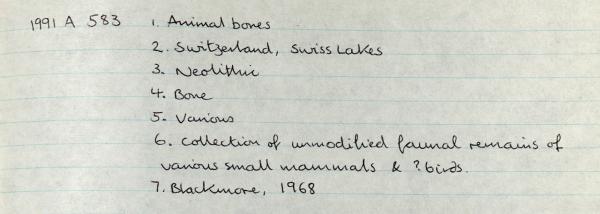 1991 A 583 1. Animal bones
2. Switzerland, Swiss Lakes
3. Neolithic
4. Bone
5. Various
6. Collection of unmodified faunal remains of
various small mammals & ? birds.
7. Blackmore, 1968